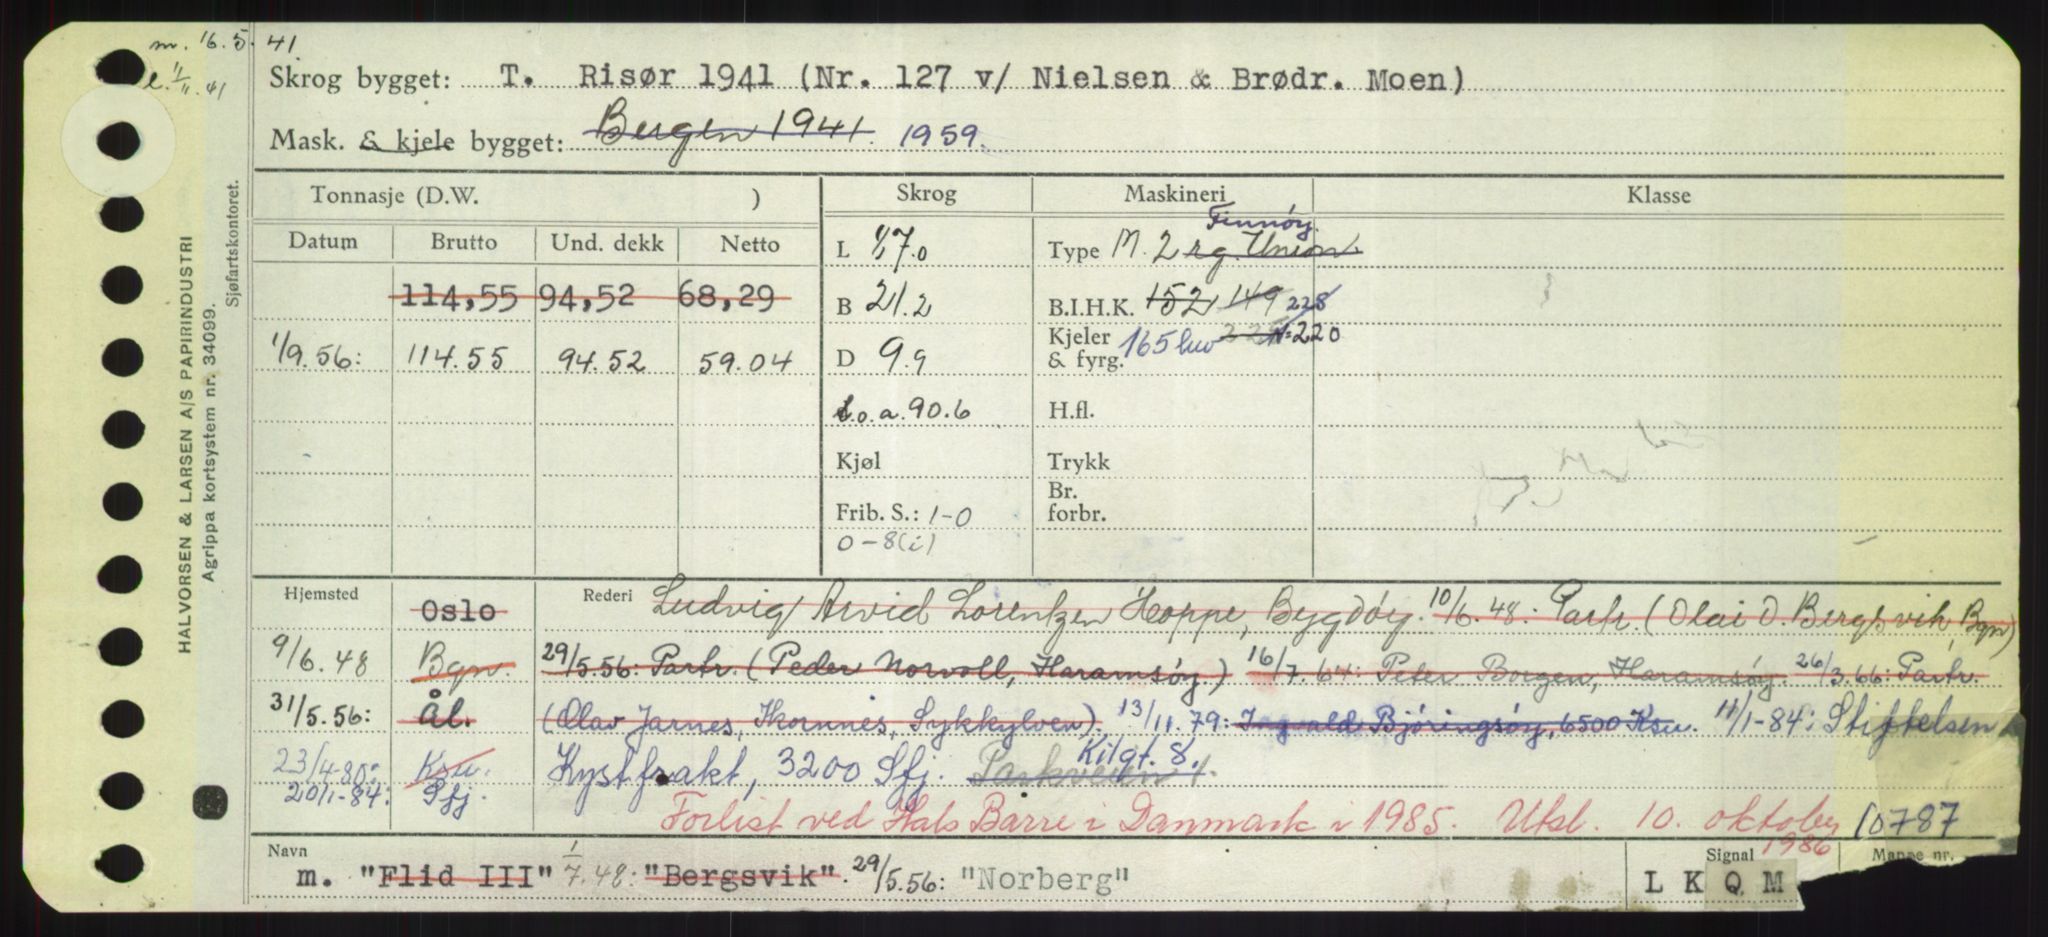 m. 16.5.41
Skrog bygget: T. Risør 1941 (Nr. 127 v/ Nielsen & Brødr. Moen)
Mask. & kjele bygget: Bergen 1941. 1959.
HALVORSEN & LARSEN A/S PAPIRINDUSTRI
Agrippa kortsystem nr. 34099.
Sjøfartskontoret.
Tonnasje (D.W. )
Datum Brutto Und. dekk Netto
114,55 94,52 68,29
1/9.56: 114.55 94.52 59.04
Skrog
L
B 21.2
D 9.9
L.o.a. 90.6
Kjøl
Frib. S.: 1-0
0-8(i)
Maskineri
Finnöy.
Type M. 2 rg. Union
B.I.H.K. 152 149 228
Kjeler & fyrg. 165 luv N=220
H.fl.
Trykk
Br. forbr.
Klasse
Hjemsted Oslo Rederi Ludvig Arvid Lorentzen Hoppe, Bygdöy. 10/6.48: Partr. (Olai O. Bergsvik, Bgn)
9/6.48 Bgn. 29/5.56: Partr. (Peder Norvoll, Haramsöy.) 16/7.64: Peter Borgen, Haramsöy. 26/3.66: Partr.
31/5.56: Ål. (Olav Jarnes, Ikornnes, Sykkylven). 13/11.79: Ingvald Björingsöy, 6500 Ksu. 11/1-84: Stiftelsen
23/4.80: Ksu. Kystfrakt, 3200 Sfj. Parkveien 1. Kilgt. 8.
20/1-84: Sfj.
Forlist ved Hals Barre i Danmark i 1985. Utsl. 10. oktober 1986
10787
Navn m. "Flid III" 1/7.48: "Bergsvik". 29/5.56: "Norberg"
Signal LKQM
Mappe nr.